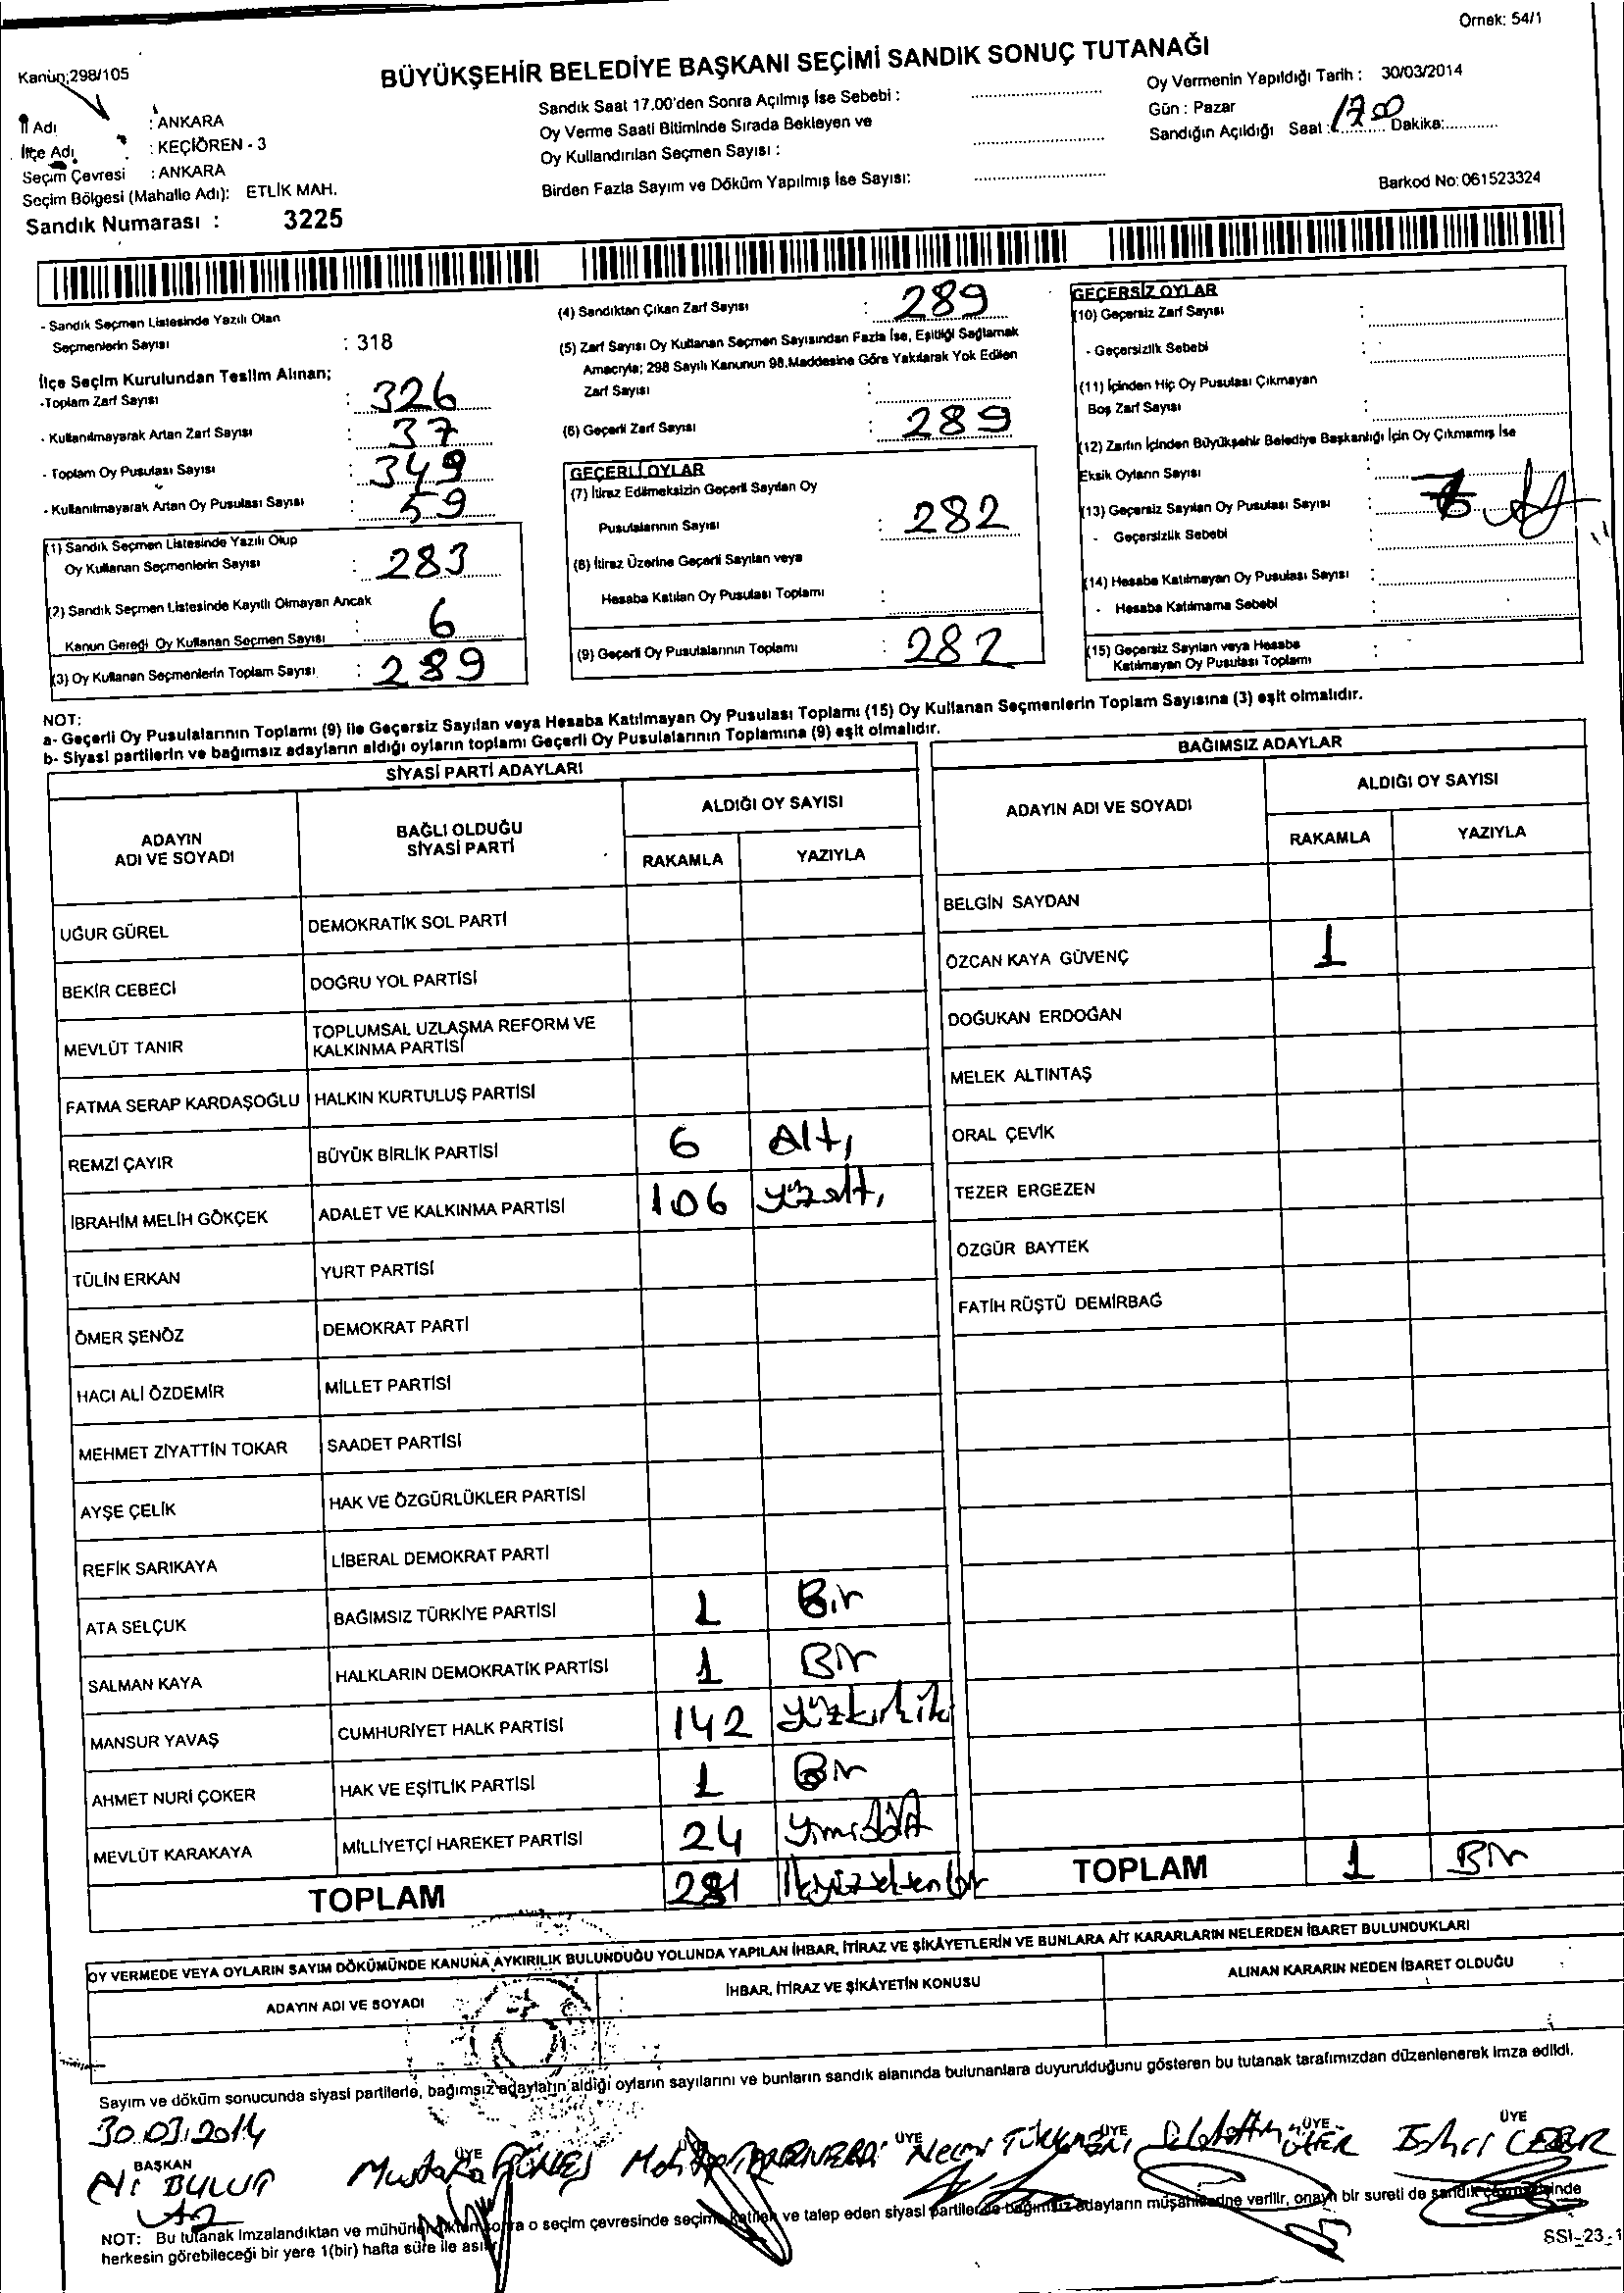 Örnek: 54/1
Kanun:298/105
BÜYÜKŞEHİR BELEDİYE BAŞKANI SEÇİMİ SANDIK SONUÇ TUTANAĞI
İl Adı : ANKARA
İlçe Adı : KEÇİÖREN - 3
Seçim Çevresi : ANKARA
Seçim Bölgesi (Mahalle Adı): ETLİK MAH.
Sandık Numarası : 3225
Sandık Saat 17.00'den Sonra Açılmış İse Sebebi :
Oy Verme Saati Bitiminde Sırada Bekleyen ve
Oy Kullandırılan Seçmen Sayısı :
Birden Fazla Sayım ve Döküm Yapılmış İse Sayısı:
Oy Vermenin Yapıldığı Tarih : 30/03/2014
Gün : Pazar
Sandığın Açıldığı Saat : 1700 Dakika:
Barkod No: 061523324
- Sandık Seçmen Listesinde Yazılı Olan
Seçmenlerin Sayısı : 318
İlçe Seçim Kurulundan Teslim Alınan;
-Toplam Zarf Sayısı : 326
- Kullanılmayarak Artan Zarf Sayısı : 37
- Toplam Oy Pusulası Sayısı : 349
- Kullanılmayarak Artan Oy Pusulası Sayısı : 59
(1) Sandık Seçmen Listesinde Yazılı Olup
Oy Kullanan Seçmenlerin Sayısı : 283
(2) Sandık Seçmen Listesinde Kayıtlı Olmayan Ancak
Kanun Gereği Oy Kullanan Seçmen Sayısı : 6
(3) Oy Kullanan Seçmenlerin Toplam Sayısı : 289
(4) Sandıktan Çıkan Zarf Sayısı : 289
(5) Zarf Sayısı Oy Kullanan Seçmen Sayısından Fazla İse, Eşitliği Sağlamak
Amacıyla; 298 Sayılı Kanunun 98.Maddesine Göre Yakılarak Yok Edilen
Zarf Sayısı :
(6) Geçerli Zarf Sayısı : 289
GEÇERLİ OYLAR
(7) İtiraz Edilmeksizin Geçerli Sayılan Oy
Pusulalarının Sayısı : 282
(8) İtiraz Üzerine Geçerli Sayılan veya
Hesaba Katılan Oy Pusulası Toplamı :
(9) Geçerli Oy Pusulalarının Toplamı : 282
GEÇERSİZ OYLAR
(10) Geçersiz Zarf Sayısı :
- Geçersizlik Sebebi :
(11) İçinden Hiç Oy Pusulası Çıkmayan
Boş Zarf Sayısı :
(12) Zarfın İçinden Büyükşehir Belediye Başkanlığı İçin Oy Çıkmamış İse
Eksik Oyların Sayısı :
(13) Geçersiz Sayılan Oy Pusulası Sayısı :
- Geçersizlik Sebebi :
(14) Hesaba Katılmayan Oy Pusulası Sayısı :
- Hesaba Katılmama Sebebi :
(15) Geçersiz Sayılan veya Hesaba
Katılmayan Oy Pusulası Toplamı :
NOT:
a- Geçerli Oy Pusulalarının Toplamı (9) ile Geçersiz Sayılan veya Hesaba Katılmayan Oy Pusulası Toplamı (15) Oy Kullanan Seçmenlerin Toplam Sayısına (3) eşit olmalıdır.
b- Siyasi partilerin ve bağımsız adayların aldığı oyların toplamı Geçerli Oy Pusulalarının Toplamına (9) eşit olmalıdır.
SİYASİ PARTİ ADAYLARI
ADAYIN ADI VE SOYADI BAĞLI OLDUĞU SİYASİ PARTİ ALDIĞI OY SAYISI
RAKAMLA YAZIYLA
UĞUR GÜREL DEMOKRATİK SOL PARTİ
BEKİR CEBECİ DOĞRU YOL PARTİSİ
MEVLÜT TANIR TOPLUMSAL UZLAŞMA REFORM VE KALKINMA PARTİSİ
FATMA SERAP KARDAŞOĞLU HALKIN KURTULUŞ PARTİSİ
REMZİ ÇAYIR BÜYÜK BİRLİK PARTİSİ 6 Altı
İBRAHİM MELİH GÖKÇEK ADALET VE KALKINMA PARTİSİ 106 yüzaltı
TÜLİN ERKAN YURT PARTİSİ
ÖMER ŞENÖZ DEMOKRAT PARTİ
HACI ALİ ÖZDEMİR MİLLET PARTİSİ
MEHMET ZİYATTİN TOKAR SAADET PARTİSİ
AYŞE ÇELİK HAK VE ÖZGÜRLÜKLER PARTİSİ
REFİK SARIKAYA LİBERAL DEMOKRAT PARTİ
ATA SELÇUK BAĞIMSIZ TÜRKİYE PARTİSİ 1 Bir
SALMAN KAYA HALKLARIN DEMOKRATİK PARTİSİ 1 Bir
MANSUR YAVAŞ CUMHURİYET HALK PARTİSİ 142 yüzkırkiki
AHMET NURİ ÇOKER HAK VE EŞİTLİK PARTİSİ 1 Bir
MEVLÜT KARAKAYA MİLLİYETÇİ HAREKET PARTİSİ 24 yirmidört
TOPLAM 281 İkiyüzseksenbir
BAĞIMSIZ ADAYLAR
ADAYIN ADI VE SOYADI ALDIĞI OY SAYISI
RAKAMLA YAZIYLA
BELGİN SAYDAN
ÖZCAN KAYA GÜVENÇ 1
DOĞUKAN ERDOĞAN
MELEK ALTINTAŞ
ORAL ÇEVİK
TEZER ERGEZEN
ÖZGÜR BAYTEK
FATİH RÜŞTÜ DEMİRBAĞ
TOPLAM 1 Bir
OY VERMEDE VEYA OYLARIN SAYIM DÖKÜMÜNDE KANUNA AYKIRILIK BULUNDUĞU YOLUNDA YAPILAN İHBAR, İTİRAZ VE ŞİKÂYETLERİN VE BUNLARA AİT KARARLARIN NELERDEN İBARET BULUNDUKLARI
ADAYIN ADI VE SOYADI İHBAR, İTİRAZ VE ŞİKÂYETİN KONUSU ALINAN KARARIN NEDEN İBARET OLDUĞU
Sayım ve döküm sonucunda siyasi partilerle, bağımsız adayların aldığı oyların sayılarını ve bunların sandık alanında bulunanlara duyurulduğunu gösteren bu tutanak tarafımızdan düzenlenerek imza edildi.
30.03.2014
BAŞKAN ÜYE ÜYE ÜYE ÜYE ÜYE
Ali BULUT Mustafa GÜNEŞ Necmi
NOT: Bu tutanak imzalandıktan ve mühürlendikten sonra o seçim çevresinde seçime katılan ve talep eden siyasi partiler ile bağımsız adayların müşahidine verilir, onaylı bir sureti de sandık çevresinde
herkesin görebileceği bir yere 1(bir) hafta süre ile asılır
SSI_23_1